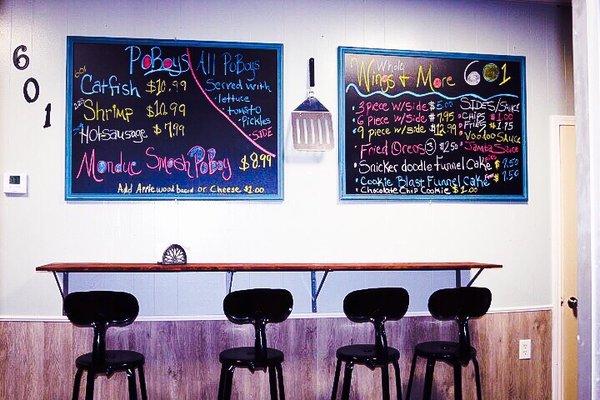 601
PoBoys
Catfish $10.99
Shrimp $10.99
Hot sausage $7.99
All PoBoys
Served with
lettuce
tomato
Pickles
SIDE
Smash PoBoy $8.99
Add Applewood bacon or Cheese $1.00
Whole
Wings & More 601
3 piece w/side $5.00
6 piece w/side $7.95
9 piece w/side $12.99
Fried Oreos ③ $2.50
SIDES/SAUCE
CHIPS $1.00
Fries $1.75
Voodoo Sauce
Jamba Sauce
Snickerdoodle Funnel Cake
Cookie Blast Funnel Cake
Chocolate Chip Cookie $1.00